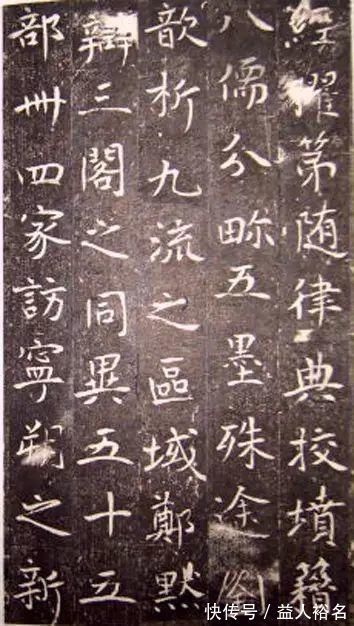 經擢第随律典挍墳籍
八儒分畛五墨殊途劉
歆析九流之區域鄭默
辯三閣之同異五十五
部卌四家訪寧朔之新
快传号／益人裕名